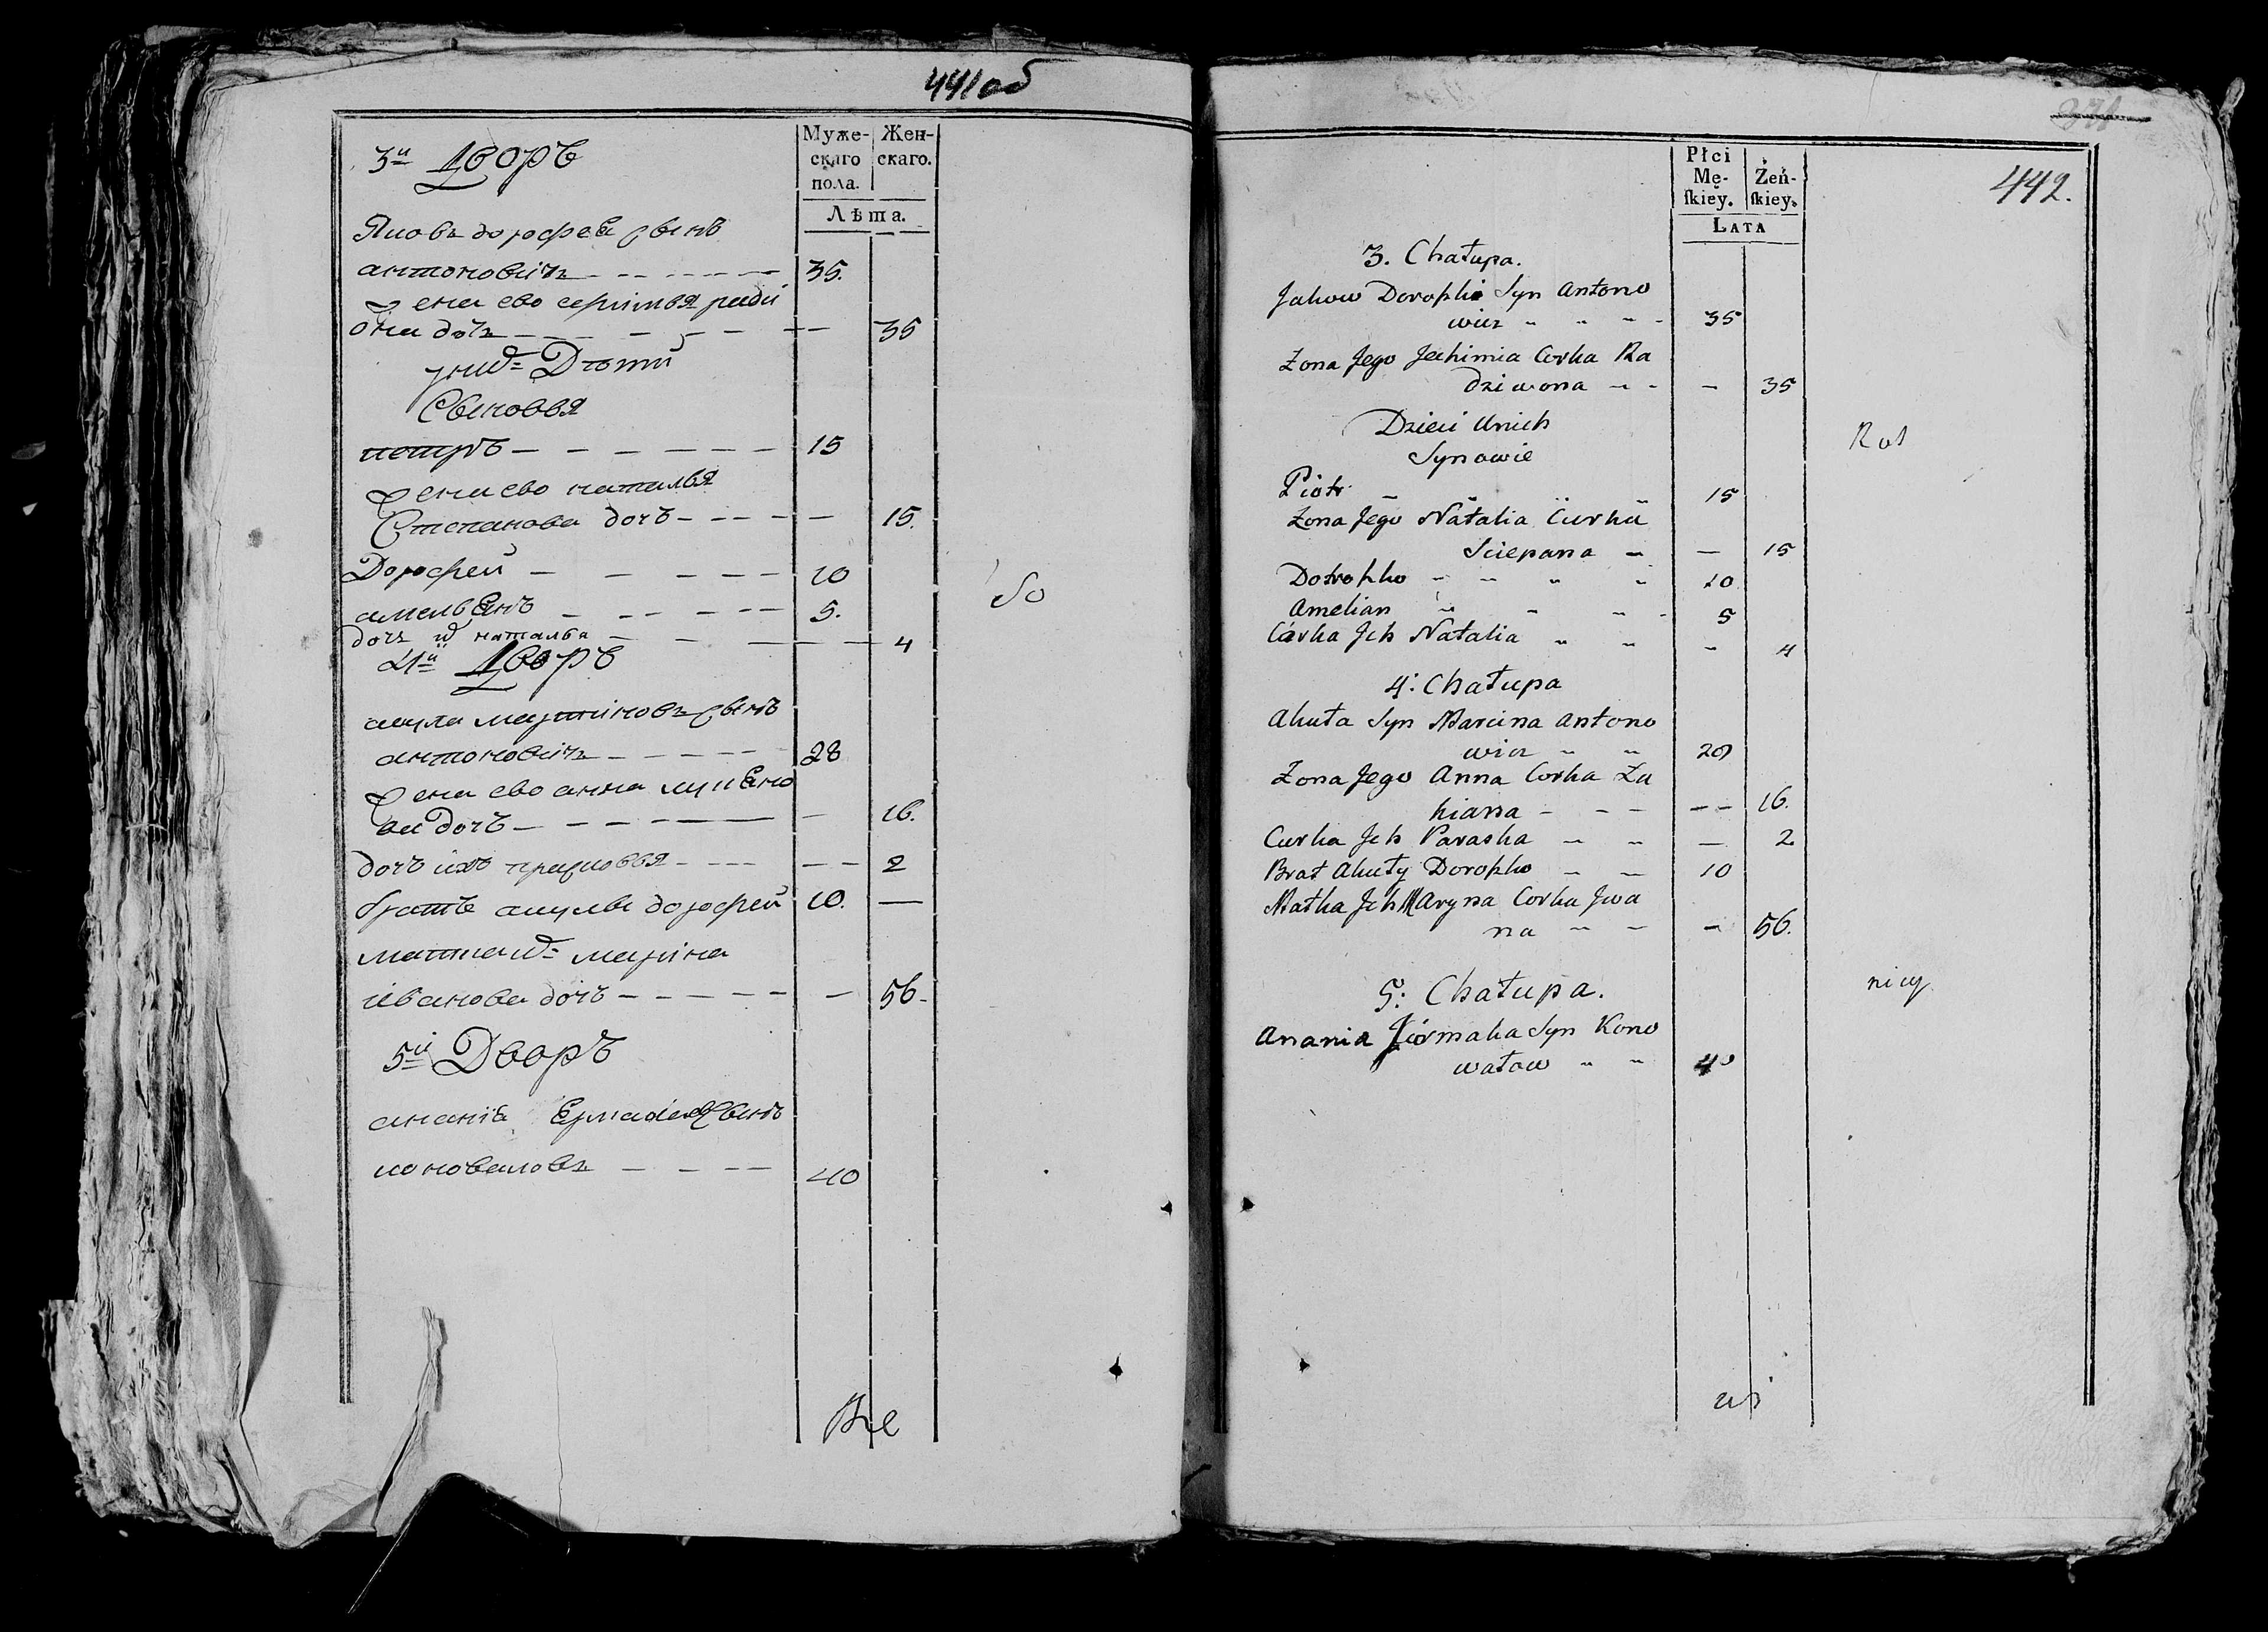 441об
3й Дворъ
Муже-
скаго
пола.
Жен-
скаго.
Лѣта.
Яковъ дорофея сынъ
антоновичъ 35.
Жена ево
дочь 35
у них Дѣти
Сыновья
петръ 15
Жена ево наталья
Степанова дочъ 15.
Дорофей 10
амельянъ 5.
дочь их наталья 4
4й Дворъ
акула мартиновъ сынъ
антоновичъ 28
Жена ево анна лукяно
ва дочъ 16.
дочъ ихъ прасковья 2
братъ акулы дорофей 10.
матка их марина
иванова дочъ 56
5й Дворъ
ананiя Ермака Сынъ
коноваловъ 40
So
Все
371
442.
Płci
Mę-
skiey.
Żeń-
skiey.
LATA
3. Chałupa.
Jakow Dorophi Syn Antono
wicz 35
Zona Jego Jechimia Corka Ra
dziwona 35
Dzieci Unich
Synowie
Piotr 15
Zona Jego Natalia Curka
Sciepana 15
Doropho 10
Amelian 5
Córka Jch Natalia 4
4: Chałupa
Akuła Syn Marcina Antono
wicz 28
Zona Jego Anna Corka Łu
kiana 16.
Curka Jch Paraska 2
Brat Akuły Doropho 10
Matka Jch Maryna Corka Jwa
na 56.
5: Chałupa.
Anania Jormaka Syn Kono
wałow 40
Rol
nicy
wsi